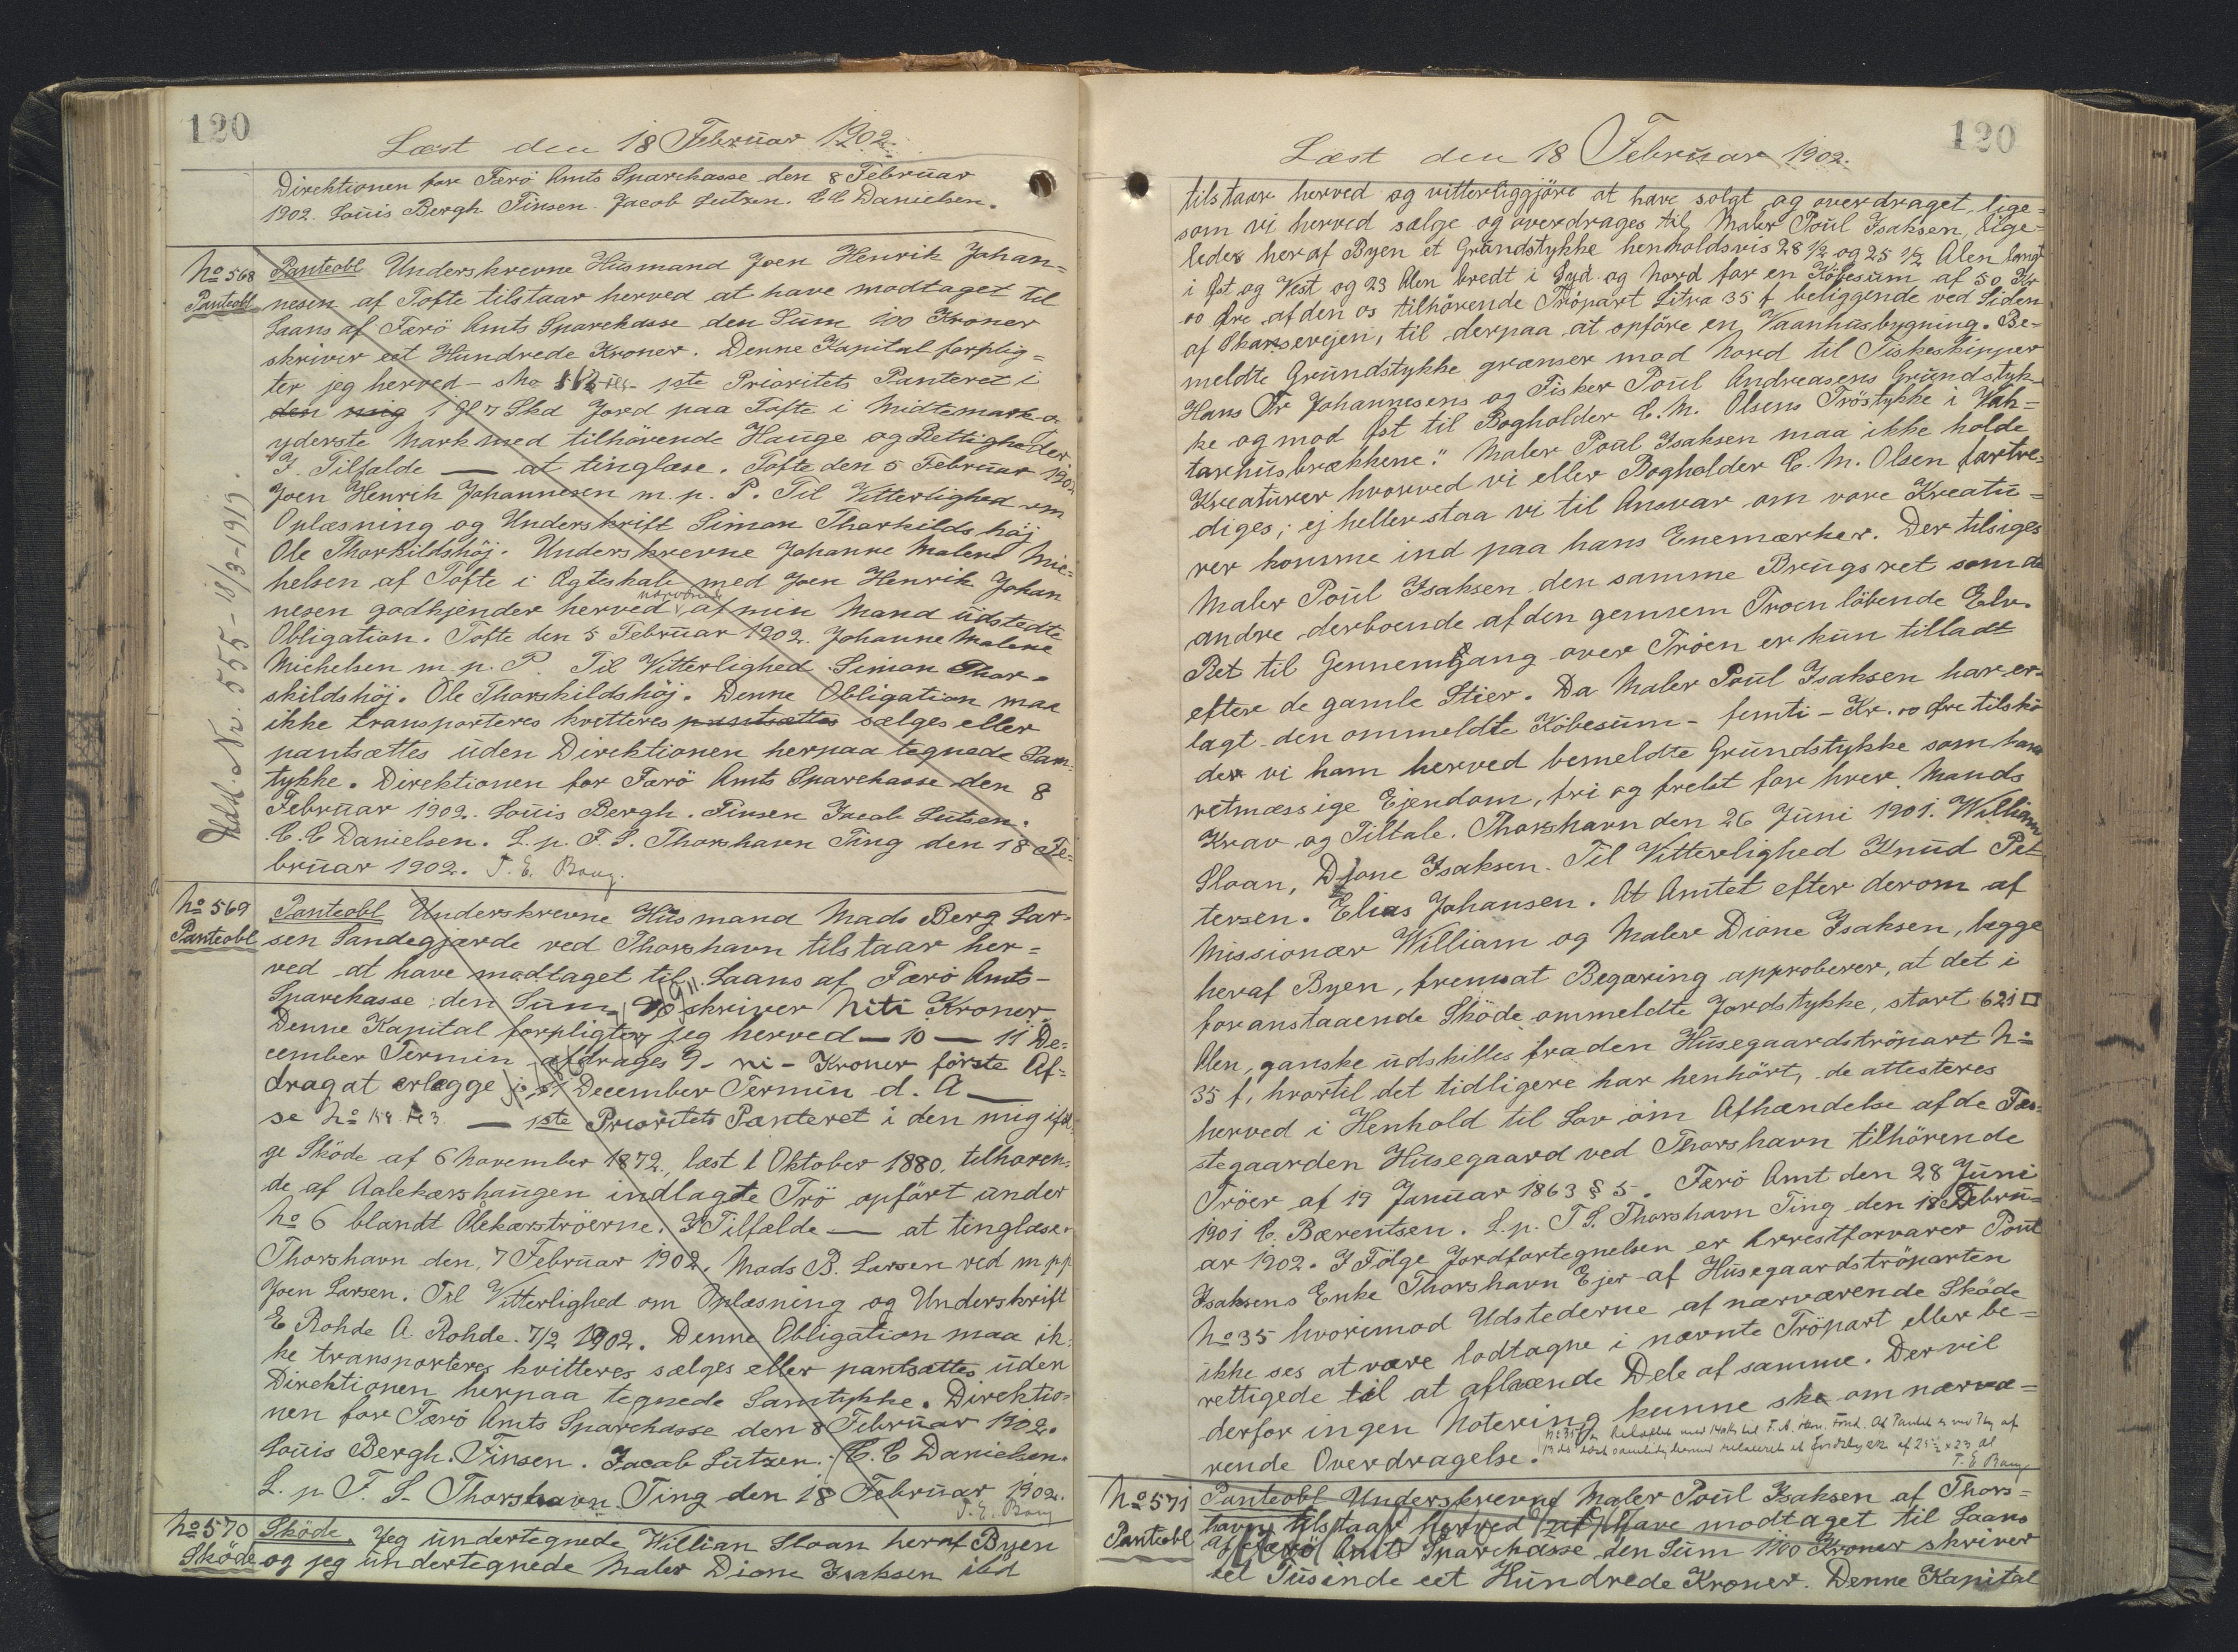 120
Læst den 18 Februar 1902.
Direktionen for Færö Amts Sparekasse den 8 Februar
1902. Louis Bergh Finsen. Jacob Lutzen. C C Danielsen.
No 568 Panteobl Underskrevne Husmand Joen Henrik Johan=
Panteobl nesen af Tofte tilstaar herved at have modtaget til
Laans af Færö Amts Sparekasse den Sum 100 Kroner
skriver eet Hundrede Kroner. Denne Kapital forplig=
ter jeg herved - 1ste Prioritets Panteret i
den mig 1 Gl 7 Skd Jord paa Tofte i Midtemark o
yderste Mark med tilhörende Hauge og Rettigheder
I. Tilfælde — at tinglæse. Tofte den 5 Februar 1902
Joen Henrik Johannesen m. p. P. Til Vitterlighed om
Oplæsning og Underskrift Simon Thorkilds höj
Ole Thorkildshöj. Underskrevne Johanne Malene Mic=
helsen af Tofte i Ægteskab med Joen Henrik Johan
nesen godkjender herved af min Mand udstedte
Obligation. Tofte den 5 Februar 1902. Johanne Malene
Michelsen m. p. P. Til Vitterlighed Simon Thor=
skildshöj. Ole Thorskildshöj. Denne Obligation maa
ikke transporteres kvitteres pantsættes sælges eller
pantsættes uden Direktionen herpaa tegnede Sam=
tykke. Direktionen for Færö Amts Sparekasse den 8
Februar 1902. Louis Bergh. Finsen Jacob Lutsen.
C. C Danielsen. L. p. F. S. Thorshavn Ting den 18 Fe=
bruar 1902. T. E. Bang.
Nr. 555 - 18/3-1919.
No 569 Panteobl Underskrevne Husmand Mads Berg Lar=
Panteobl sen Sandegjærde ved Thorshavn tilstaar her=
ved at have modtaget til Laans af Færö Amts-
Sparekasse den Sum 90 skriver Niti Kroner
Denne Kapital forpligter jeg herved — 10 — 11 De=
cember Termin afdrages 9 - ni - Kroner förste Af=
drag at erlægge i 11 December Termin d. A —
se No — 1ste Prioritets Panteret i den mig iföl
ge Sköde af 6 November 1872, læst 1 Oktober 1880. tilhören=
de af Aalekærshaugen indlagte Trö opfört under
No 6 blandt Ålekærströerne. I Tilfælde — at tinglæse.
Thorshavn den 7 Februar 1902. Mads B. Larsen ved m pp
Joen Larsen. Til Vitterlighed om Oplæsning og Underskrift
E Rohde A Rohde. 7/2 1902. Denne Obligation maa ik=
ke transporteres kvitteres sælges eller pantsættes uden
Direktionen herpaa tegnede Samtykke. Direktio=
nen for Færö Amts Sparekasse den 8 Februar 1902.
Louis Bergh. Finsen. Jacob Lutzen. C. C Danielsen.
L. p F. S. Thorshavn Ting den 18 Februar 1902.
T. E. Bang
No 570 Sköde. Jeg undertegnede Willian Sloan heraf Byen
Sköde og jeg undertegnede Maler Dione Isaksen
120
Læst den 18 Februar 1902.
tilstaar herved og vitterliggjöre at have solgt og overdraget, lige=
som vi herved sælge og overdrages til Maler Poul Isaksen, lige=
ledes heraf Byen et Grundstykke henholdsvis 28 1/2 og 25 1/2 Alen langt
i Öst og Vest og 23 Alen bredt i Syd og Nord for en Köbesum af 50 Kr
00 Öre af den os tilhörende Tröpart Litra 35 f beliggende ved Siden
af Skansevejen, til derpaa at opföre en Vaanhusbygning. Be=
meldte Grundstykke grænser mod Nord til Fiskeskipper
Hans Fr Johannesens og Fisker Poul Andreasens Grundstyk
ke og mod Öst til Bogholder C. M. Olsens Tröstykke i Vak=
tarhusbrekkene." Maler Poul Isaksen maa ikke holde
Kreaturer hvorved vi eller Bogholder C. M. Olsen fortre=
diges; ej heller staa vi til Ansvar om vore Kreatu=
rer komme ind paa hans Enemærker. Der tilsiges
Maler Poul Isaksen den samme Brugsret som de
andre derboende af den gennem Troen löbende Elv.
Ret til Gennemgang over Tröen er kun tilladt
efter de gamle Stier. Da Maler Poul Isaksen har er=
lagt den ommeldte Köbesum - femti - Kr. 00 Öre tilskö
der vi ham herved bemeldte Grundstykke som hans
retmæssige Ejendom, fri og frelst for hver Mands
Krav og Tiltale. Thorshavn den 26 Juni 1901. William
Sloan, Djone Isaksen. Til Vitterlighed Knud Pet
tersen. Elias Johansen. At Amtet efter derom af
Missionær William og Maler Dione Isaksen, begge
heraf Byen, fremsat Begæring approberer, at det i
foranstaaende Sköde ommeldte Jordstykke, stort 621 □
Alen, ganske udskilles fra den Husegaardströpart No
35 f, hvortil det tidligere har henhört, de attesteres
herved i Henhold til Lov om Afhændelse af de Fæ=
stegaarden Husegaard ved Thorshavn tilhörende
Tröer af 19 Januar 1863 § 5. Færö Amt den 28 Juni
1901 C. Bærentsen. L. p. F S. Thorshavn Ting den 18 Febru=
ar 1902. I Fölge Jordfortegnelsen er Arrestforvarer Poul
Isaksens Enke Thorshavn Ejer af Husegaardströparten
No 35 hvorimod Udstederne af nærværende Sköde
ikke ses at være lodtagne i nævnte Tröpart eller be=
rettigede til at afhænde Dele af samme. Der vil
derfor ingen Notering kunne ske om nærvæ=
rende Overdragelse.
T. E Bang
No 571 Panteobl Underskrevne Maler Poul Isaksen af Thors=
Panteobl havn tilstaar herved at have modtaget til Laans
af Færö Amts Sparekasse den Sum 1100 Kroner skriver
eet Tusende eet Hundrede Kroner. Denne Kapital